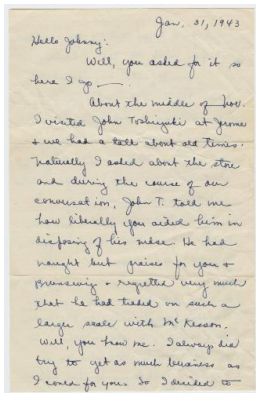 Jan. 31, 1943
Hello Johnny:
Well, you asked for it so
here I go —.
About the middle of Nov.
I visited John Toshiyuki at Jerome
+ we had a talk about old times.
Naturally I asked about the store
and during the course of our
conversation, John T. told me
how liberally you aided him in
disposing of his mdse. He had
naught but praises for you +
Brunswig + regretted very much
that he had traded on such a
larger scale with McKesson.
Well, you know me. I always did
try to get as much business as
I could for you. So I decided to